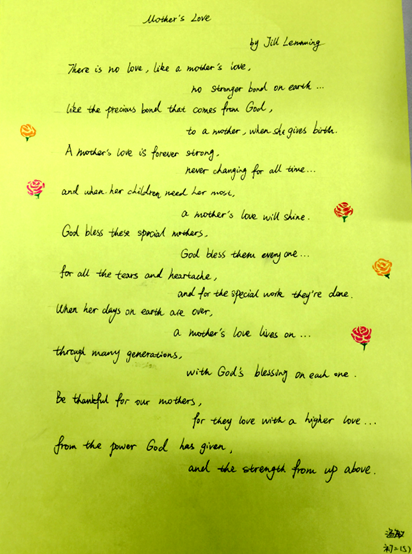 Mother's Love
by Jill Lemming
There is no love, like a mother's love,
no stronger bond on earth...
like the precious bond that comes from God,
to a mother, when she gives birth.
A mother's love is forever strong,
never changing for all time...
and when her children need her most,
a mother's love will shine.
God bless these special mothers,
God bless them every one...
for all the tears and heartache,
and for the special work they're done.
When her days on earth are over,
a mother's love lives on...
through many generations,
with God's blessing on each one.
Be thankful for our mothers,
for they love with a higher love...
from the power God has given,
and the strength from up above.
初二(5)